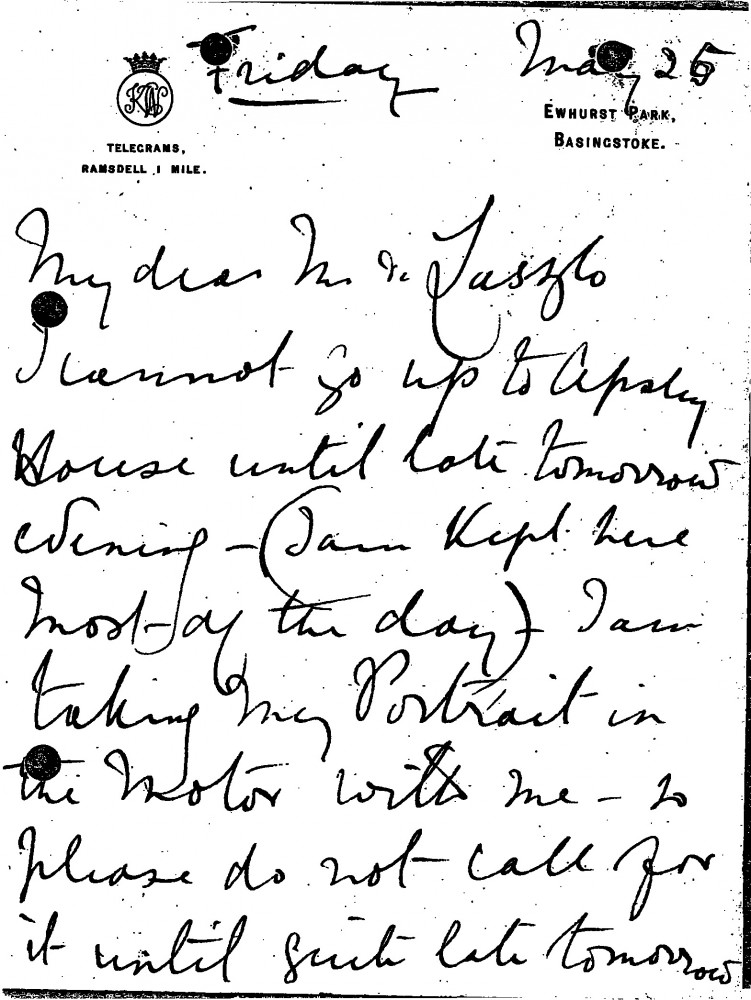 Friday May 25
EWHURST PARK,
BASINGSTOKE.
TELEGRAMS,
RAMSDELL 1 MILE.
My dear Mr de Laszlo
I cannot go up to Apsley
House until late tomorrow
evening – (I am kept here
most of the day) – I am
taking my Portrait in
the Motor with me – so
please do not call for
it until quite late tomorrow